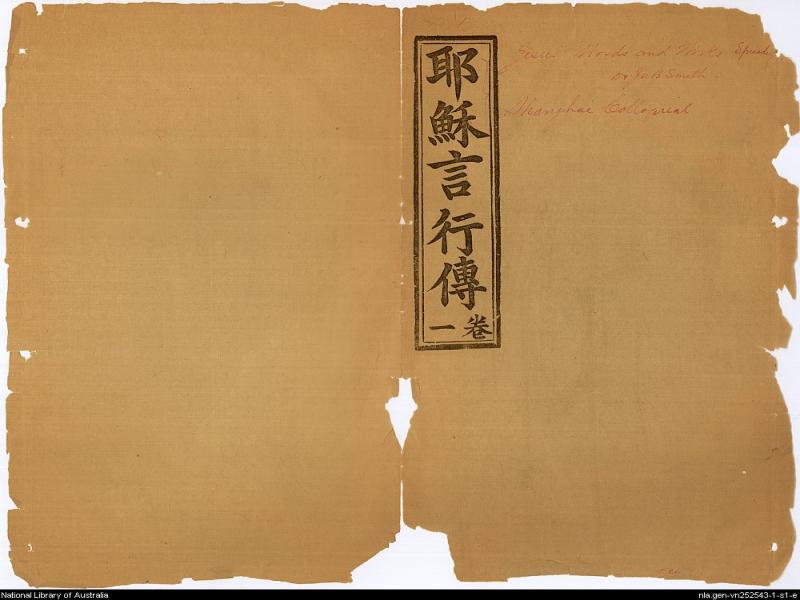 耶穌言行傳
卷一
Jesus Words and Works Spread
Dr. Smith
Shanghae Colloquial
National Library of Australia
nla.gen-vn252543-1-s1-e